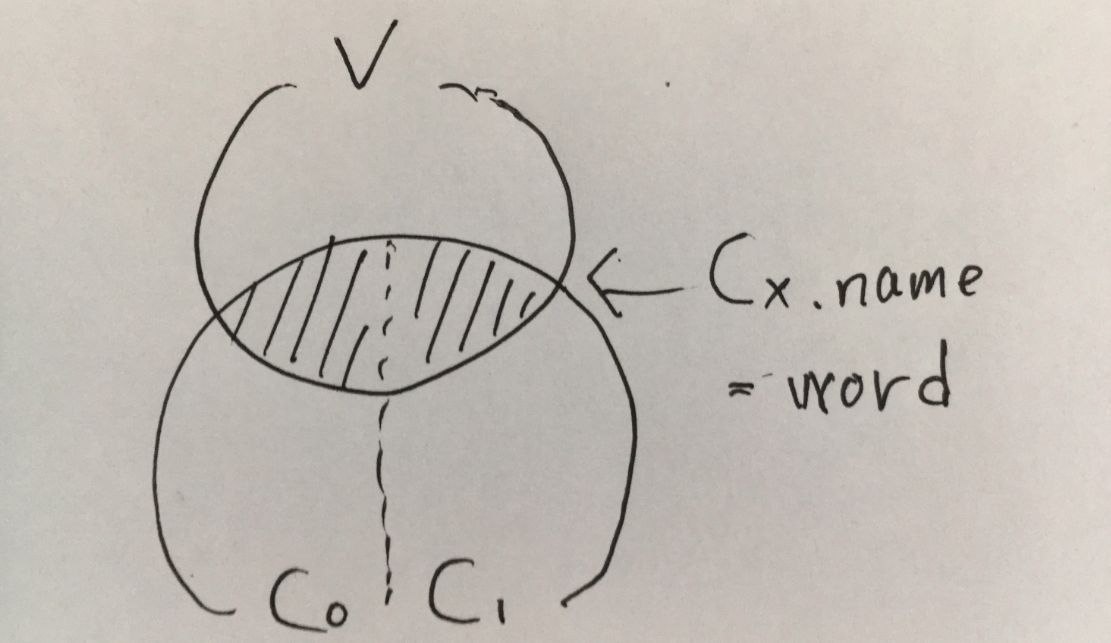 V
Cx.name
= word
C0 C1